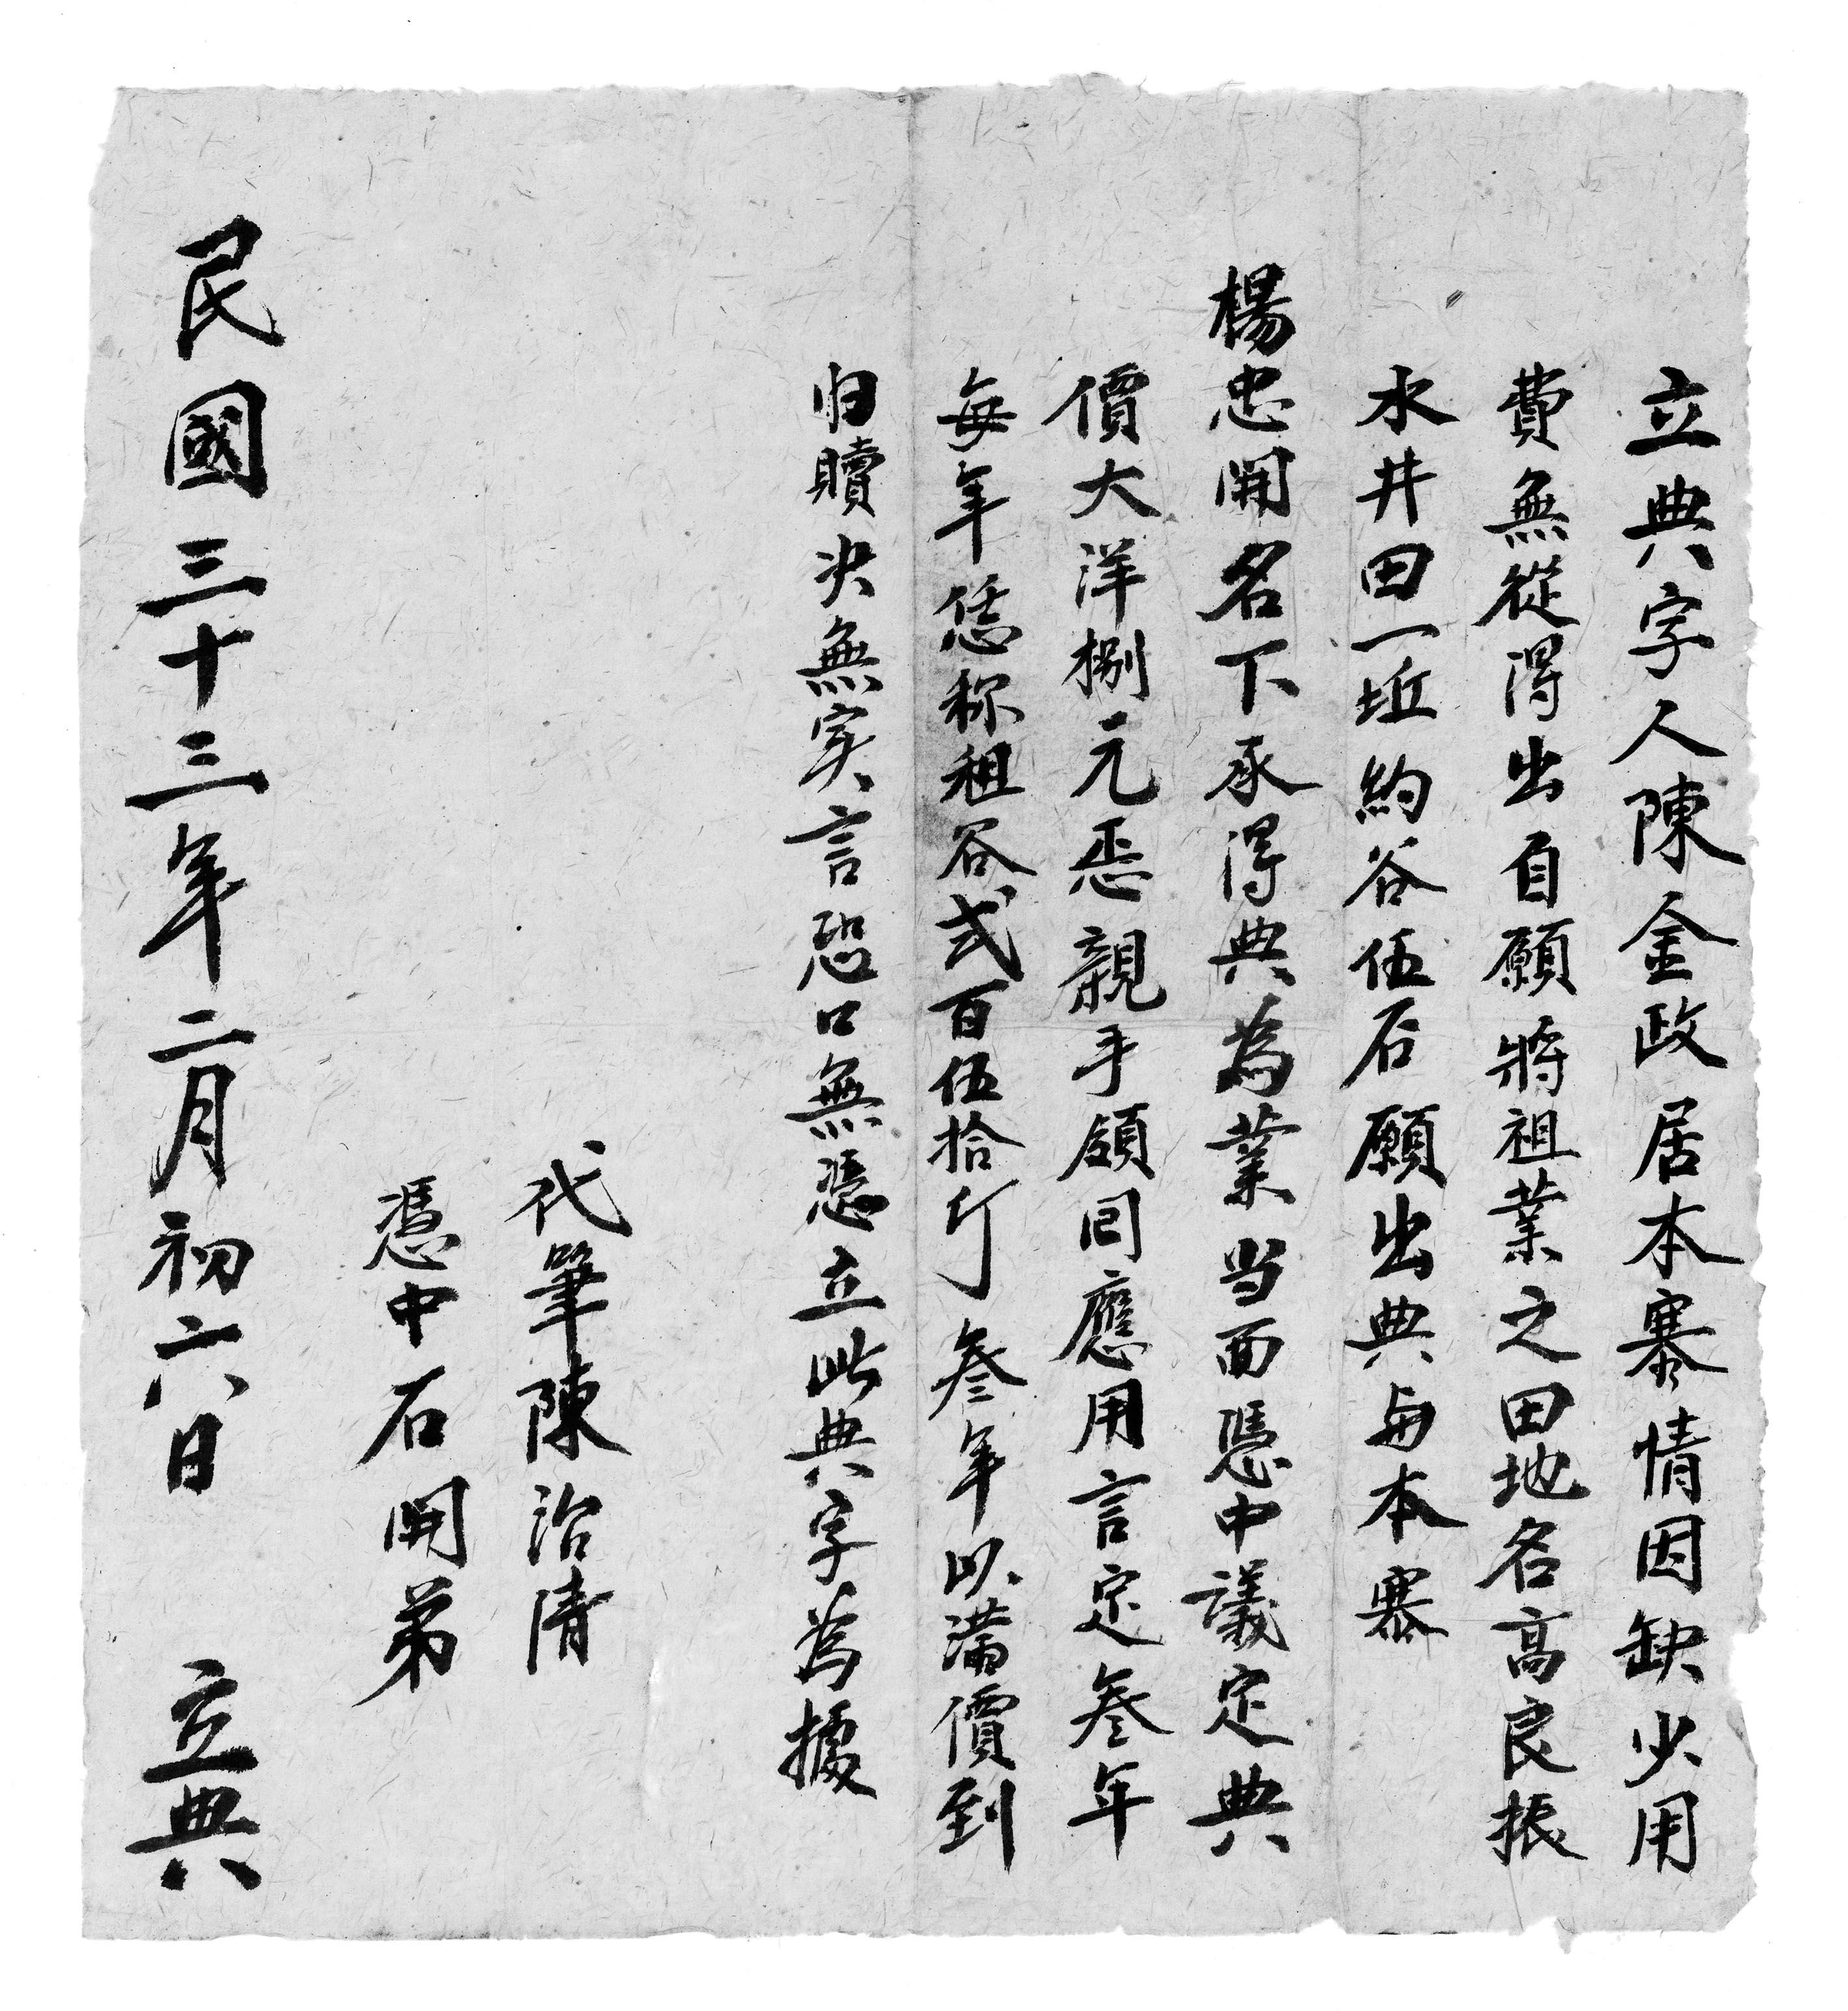 立典字人陳金政居本寨情因缺少用
費無從得出自願將祖業之田地名高良振
水井田一坵約谷伍石願出典与本寨
楊忠開名下承得典為業当面憑中議定典
價大洋捌元恁親手領囘應用言定叁年
每年恁称祖谷弍百伍拾斤叁年以滿價到
归贖决無寔言恐口無憑立此典字為據
代筆陳治清
憑中石開弟
民國三十三年二月初六日 立典